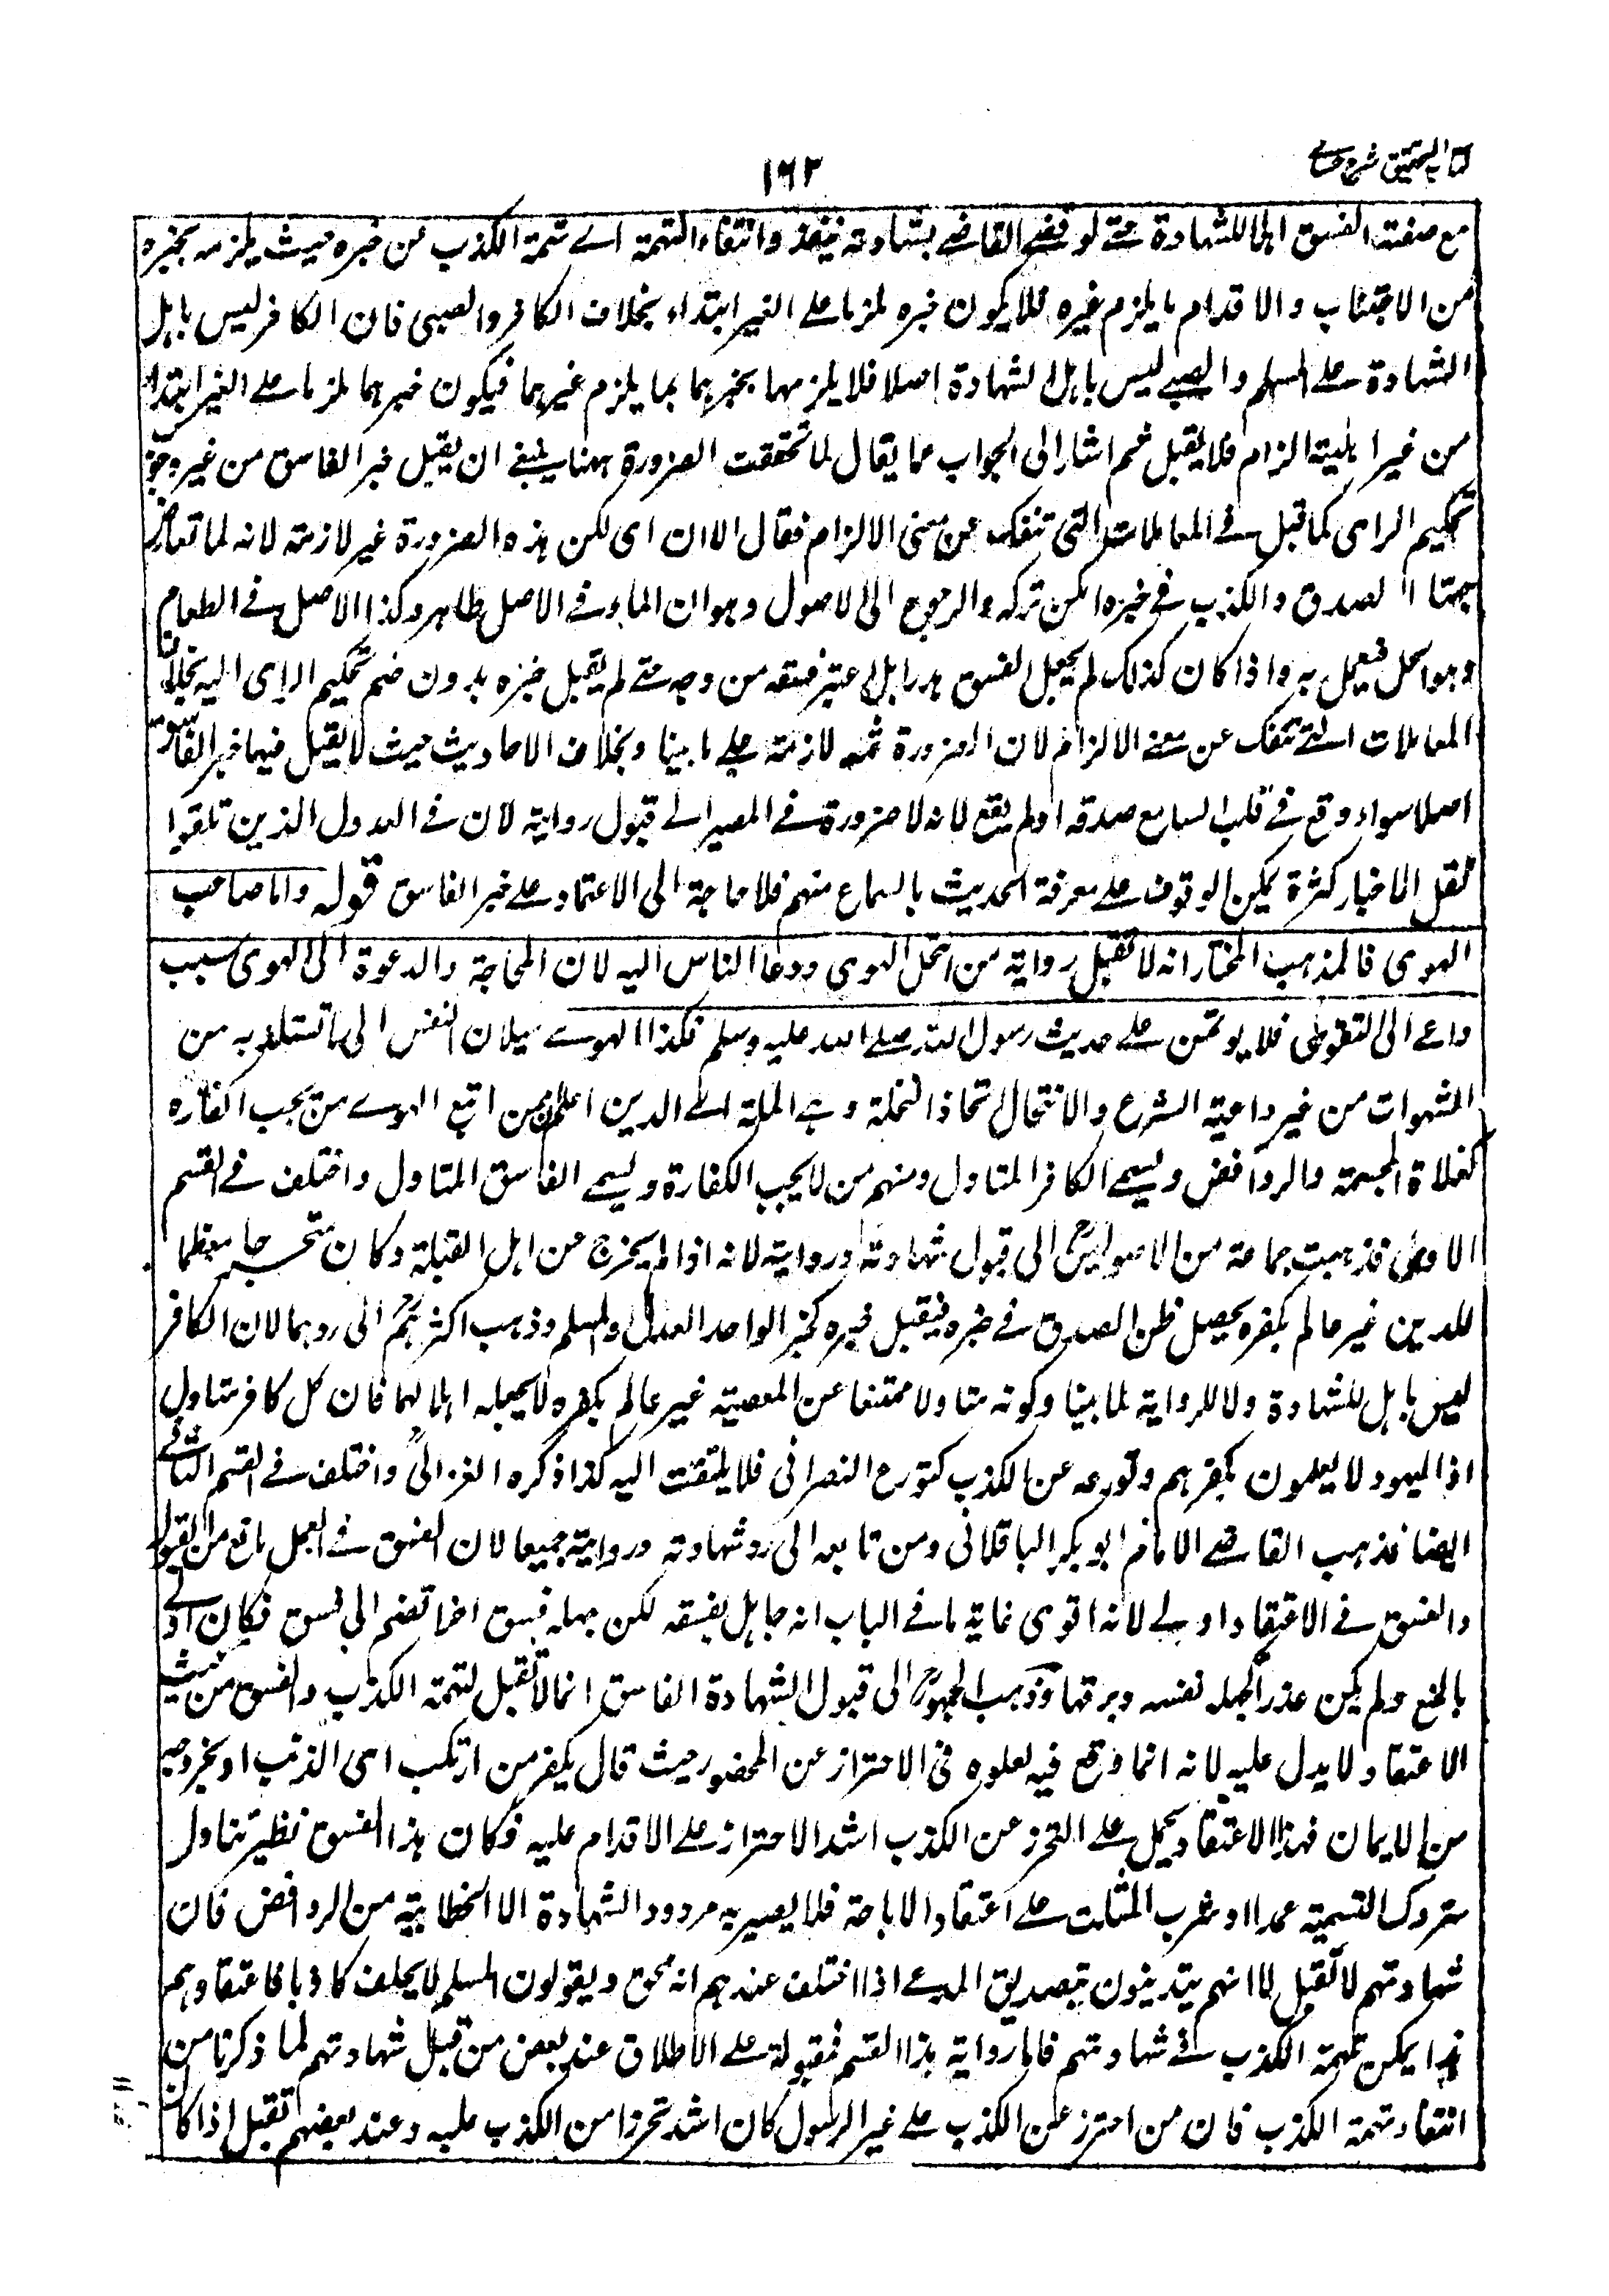 كتاب التحقيق شرح حسامي
١٦٢
مع صفة الفسق اهل للشهادة حتى لو قضى القاضي بشهادته ينفذ وانتفاء التهمة اى تهمة الكذب عن خبره حيث يلزمه بخبره
من الاجتناب والاقدام ما يلزم غيره فلا يكون خبره ملزما على الغير ابتداء بخلاف الكافر والصبى فان الكافر ليس باهل
الشهادة على المسلم والصبى ليس باهل الشهادة اصلا فلا يلزمهما بخبرهما بما يلزم غيرهما فيكون خبرهما ملزما على الغير ابتداء
من غير اهلية الزام فلا يقبل ثم اشار الى الجواب عما يقال لما تحققت الضرورة ههنا ينبغي ان يقبل خبر الفاسق من غير وجوب
تحكيم الراى كما قبل فى المعاملات التى تنفك عن معنى الالزام فقال الا ان اى لكن هذه الضرورة غير لازمة لانه لما تعارض
جهتا الصدق والكذب فى خبره امكن تركه والرجوع الى الاصول وهو ان الماء فى الاصل طاهر وكذا الاصل فى الطعام
وهو الحل فيعمل به واذا كان كذلك لم يجعل الفسق هدرا بل اعتبر فسقه من وجه حتى لم يقبل خبره بدون ضم تحكيم الراى اليه بخلاف
المعاملات التى تنفك عن معنى الالزام لان الضرورة ثمه لازمة على ما بينا وبخلاف الاحاديث حيث لا يقبل فيها خبر الفاسق
اصلا سواء وقع فى قلب السامع صدقه او لم يقع لانه لا ضرورة فى المصير الى قبول روايته لان فى العدول الذين تلقوا
نقل الاخبار كثرة يمكن الوقوف على معرفة الحديث بالسماع منهم فلا حاجة الى الاعتماد على خبر الفاسق قوله واما صاحب
الهوى فالمذهب المختار انه لا تقبل رواية من انتحل الهوى ودعا الناس اليه لان المحاجة والدعوة الى الهوى سبب
داع الى التقول فلا يؤتمن على حديث رسول الله صلى الله عليه وسلم فكذا الهوى ميلان النفس الى ما تستلذ به من
الشهوات من غير داعية الشرع والانتحال اتخاذ النحلة وهى الملة اى الدين اعلم ان من اتبع الهوى من يجب اكفاره
كغلاة المجسمة والروافض ويسمى الكافر المتاول ومنهم من لا يجب اكفاره ويسمى الفاسق المتاول واختلف فى القسم
الاول فذهبت جماعة من الاصوليين الى قبول شهادته وروايته لانه اذا لم يخرج من اهل القبلة وكان متحرجا معظما
للدين غير عالم بكفره يحصل ظن الصدق فى خبره فيقبل خبره كخبر الواحد العدل المسلم وذهب اكثرهم الى ردهما لان الكافر
ليس باهل للشهادة ولا للرواية لما بينا وكونه متاولا ممتنعا عن المعصية غير عالم بكفره لا يجعله اهلا لهما فان كل كافر متاول
اذ اليهود لا يعلمون بكفرهم وتورعه عن الكذب كتورع النصرانى فلا يلتفت اليه كذا ذكره الغزالى واختلف فى القسم الثانى
ايضا فذهب القاضى الامام ابو بكر الباقلانى ومن تابعه الى رد شهادته وروايته جميعا لان الفسق فى العمل مانع من القبول
والفسق فى الاعتقاد اولى لانه اقوى غاية ما فى الباب انه جاهل بفسقه لكن جهله فسق اخر انضم الى فسق فكان اولى
بالمنع ولم يكن عذرا كجهله نفسه وبرقها وذهب الجمهور الى قبول الشهادة الفاسق انما لا تقبل لتهمة الكذب والفسق من حيث
الاعتقاد لا يدل عليه لانه انما وقع فيه لعلوه فى الاحتراز عن المحظور حيث قال يكفر من ارتكب اى الذنب او بخروجه
من الايمان فهذا الاعتقاد يحمل على التحرز عن الكذب اشد الاحتراز على الاقدام عليه فكان هذا الفسق نظير تناول
متروك التسمية عمدا او شرب المثلث على اعتقاد الاباحة فلا يصير به مردود الشهادة الا الخطابية من الروافض فان
شهادتهم لا تقبل لما انهم يتدينون بتصديق المدعى اذا اختلف عندهم انه محق ويقولون المسلم لا يحلف كاذبا فاعتقادهم
هذا يمكن تهمة الكذب فى شهادتهم فاما رواية هذا القسم فمقبولة على الاطلاق عند بعض من قبل شهادتهم لما ذكرنا من
انتفاء تهمة الكذب فان من احترز عن الكذب على غير الرسول كان اشد تحرزا من الكذب عليه وعند بعضهم تقبل اذا كان